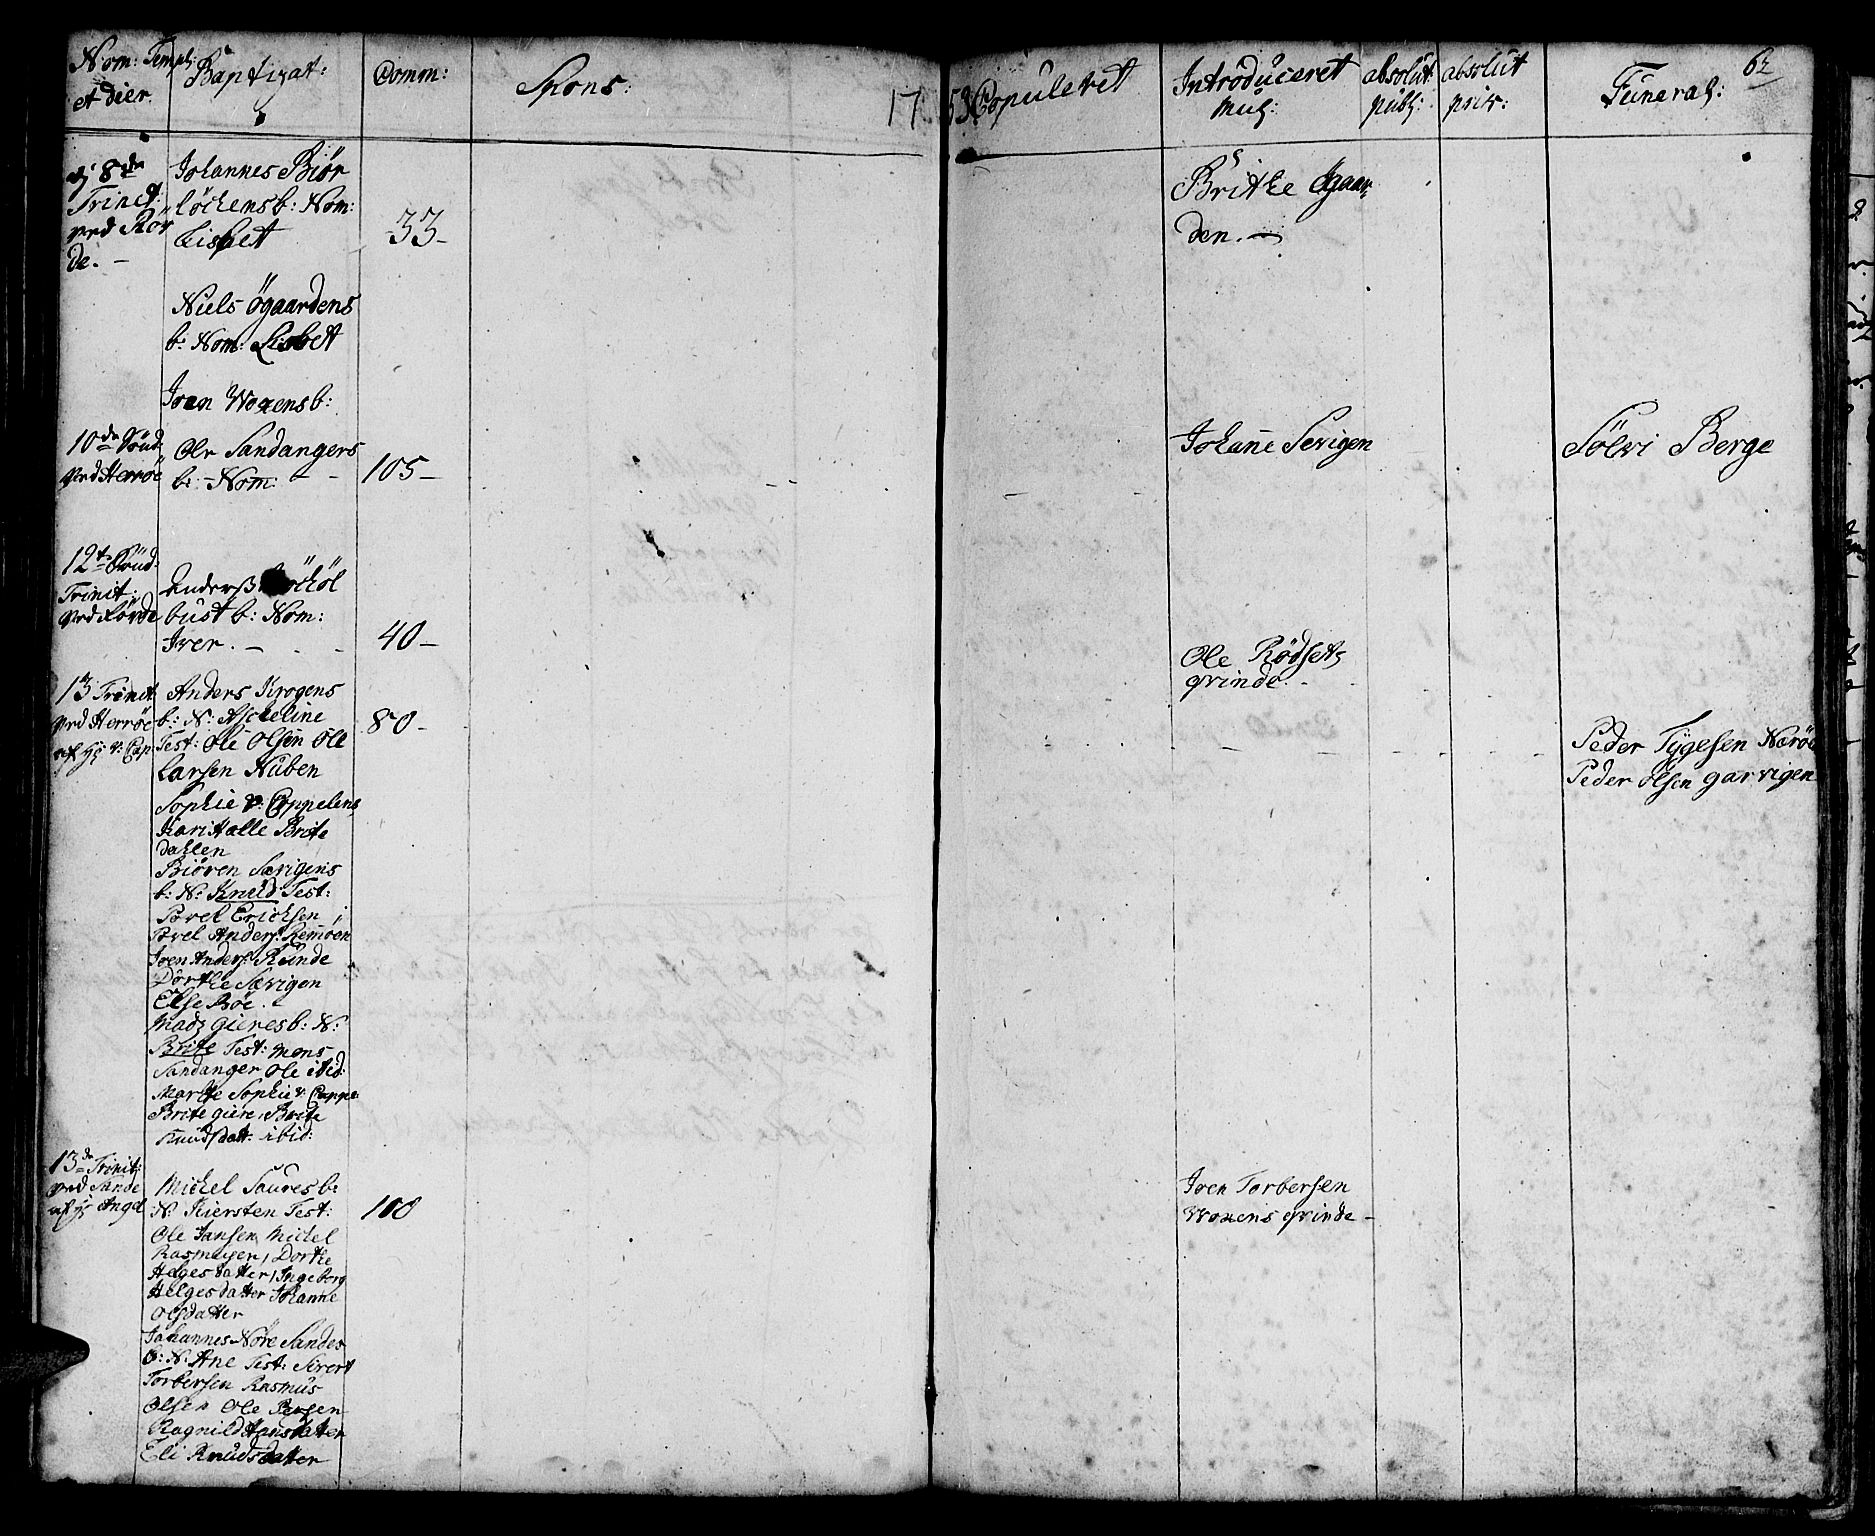 Nom: Templ:
et dier.
Baptizat:
Comm:
Spons:
1753
Copuleret
Introduceret
Mul:
absolut
publ:
absolut
priv:
Funeral:
62
dj 8de
Trinit:
ved Rör
de. –
Johannes Biör
löckens b: Nom:
Lisbet
33 –
Britke Øgaar
den. –
Niels Øgaardens
b: Nom: Lisbet
Iven Woxens b:
10de Sönd:
ved Herröe
Ole Sandangers
b: – Nom: – –
105 –
Johane Sevigen
Sölvi Berge
12te Sönd:
Trinit:
ved Rörde
Anders
bust b: Nom:
Iver. – –
40 –
Ole Rödsets
qvinde. –
13 Trinit
ved Herröe
af Hr v: Cap
Anders Krogens
b: N: Ascheline
Test: Ole Olsen Ole
Larsen Nuben
Sophie v: Coppelens
Kari Halle Brite
Dahlen
80 –
Peder Tygesen Næröe
Peder Olsen garvigen
Biören Sævigens
b: N: Knud Test:
Povel Erichsen,
Povel Anders: Remöen
Iven Anders: Runde
Dorthe Sævigen
Else Böe.
Mads gieres b: N:
Brite Test: Mons
Sandanger Ole ibid:
Marthe Sophie v: Coppe:
Brite giere, Brite
Knudsdatt: ibid:
13de Trinit:
ved Sande
af Hr Angel
Michel Saures b:
N: Kiersten Test:
Ole Jansen Michel
Rasmusen, Dorthe
Helgesdatter, Ingeborg
Helgesdatter Johanne
Olsdatter
108
Iven Torbersen
Woxens qvinde –
Johannes Nore Sandes
b: N: Ane Test: Sivert
Torbersen Rasmus
Olsen Ole Bersen
Ragnild Hansdatter
Eli Knudsdatter